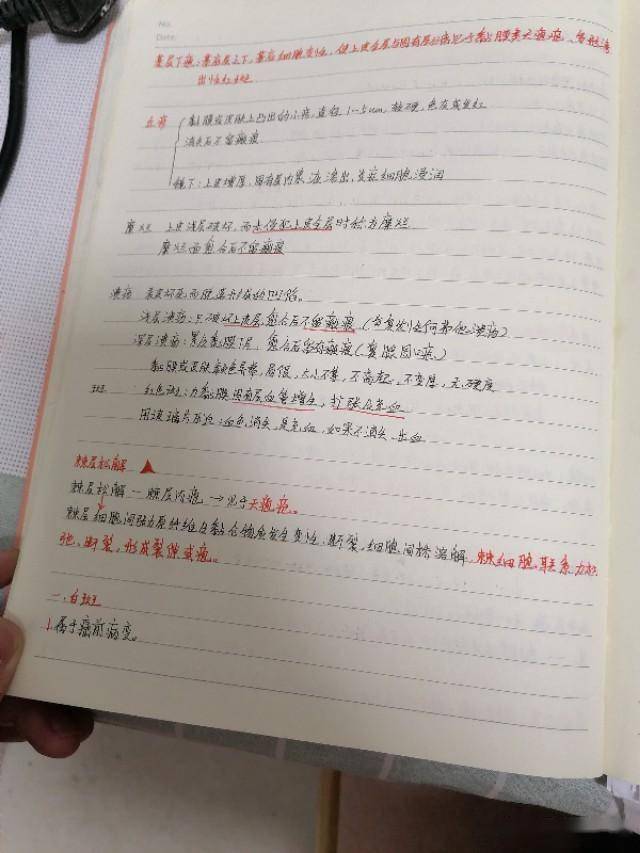 No.
Date.
基层下疱：基底层之下，基底细胞变性，使上皮全层与固有层分离见于黏膜类天疱疮、多形渗
出性红斑
丘疹 黏膜或皮肤上凸出的小疹，直径1-5cm，较硬，色灰或发红
消失后不留瘢痕
镜下：上皮增厚，固有层内浆液渗出，炎症细胞浸润
糜烂 上皮浅层破坏，而未侵犯上皮全层时称为糜烂
糜烂面愈合后不留瘢痕
溃疡 表皮坏死而脱落形成的凹陷。
浅层溃疡：只破坏上皮层，愈合后不留瘢痕（如复发性阿弗他溃疡）
深层溃疡：累及黏膜下层，愈合后留有瘢痕（复腺周口疮）
黏膜或皮肤颜色异常，局限，大小不等，不高起，不变厚，无硬度
斑 红色斑：为黏膜固有层血管增生，扩张及充血
用玻璃片压迫：血色消失，是充血，如果不消失，出血
棘层松解
棘层松解—棘层内疱 →见于天疱疮。
棘层细胞间张力原纤维及黏合物质发生变性、断裂，细胞间桥溶解，棘细胞联系力松
弛、断裂，形成裂隙或疱。
一、白斑
1.属于癌前病变。